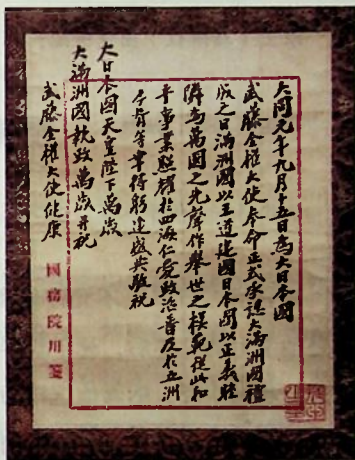 大同元年九月十五日為大日本國
武藤全權大使奉命正式承認大滿洲國禮
成之日滿洲國以王道建國日本國以正義睦
隣為萬國之先聲作舉世之模範從此和
平事業照耀於四海仁愛政治普及於五洲
本肯等幸得躬逢盛典敬祝
大日本國天皇陛下萬歲
大滿洲國執政萬歲并祝
武藤全權大使健康
國務院用箋